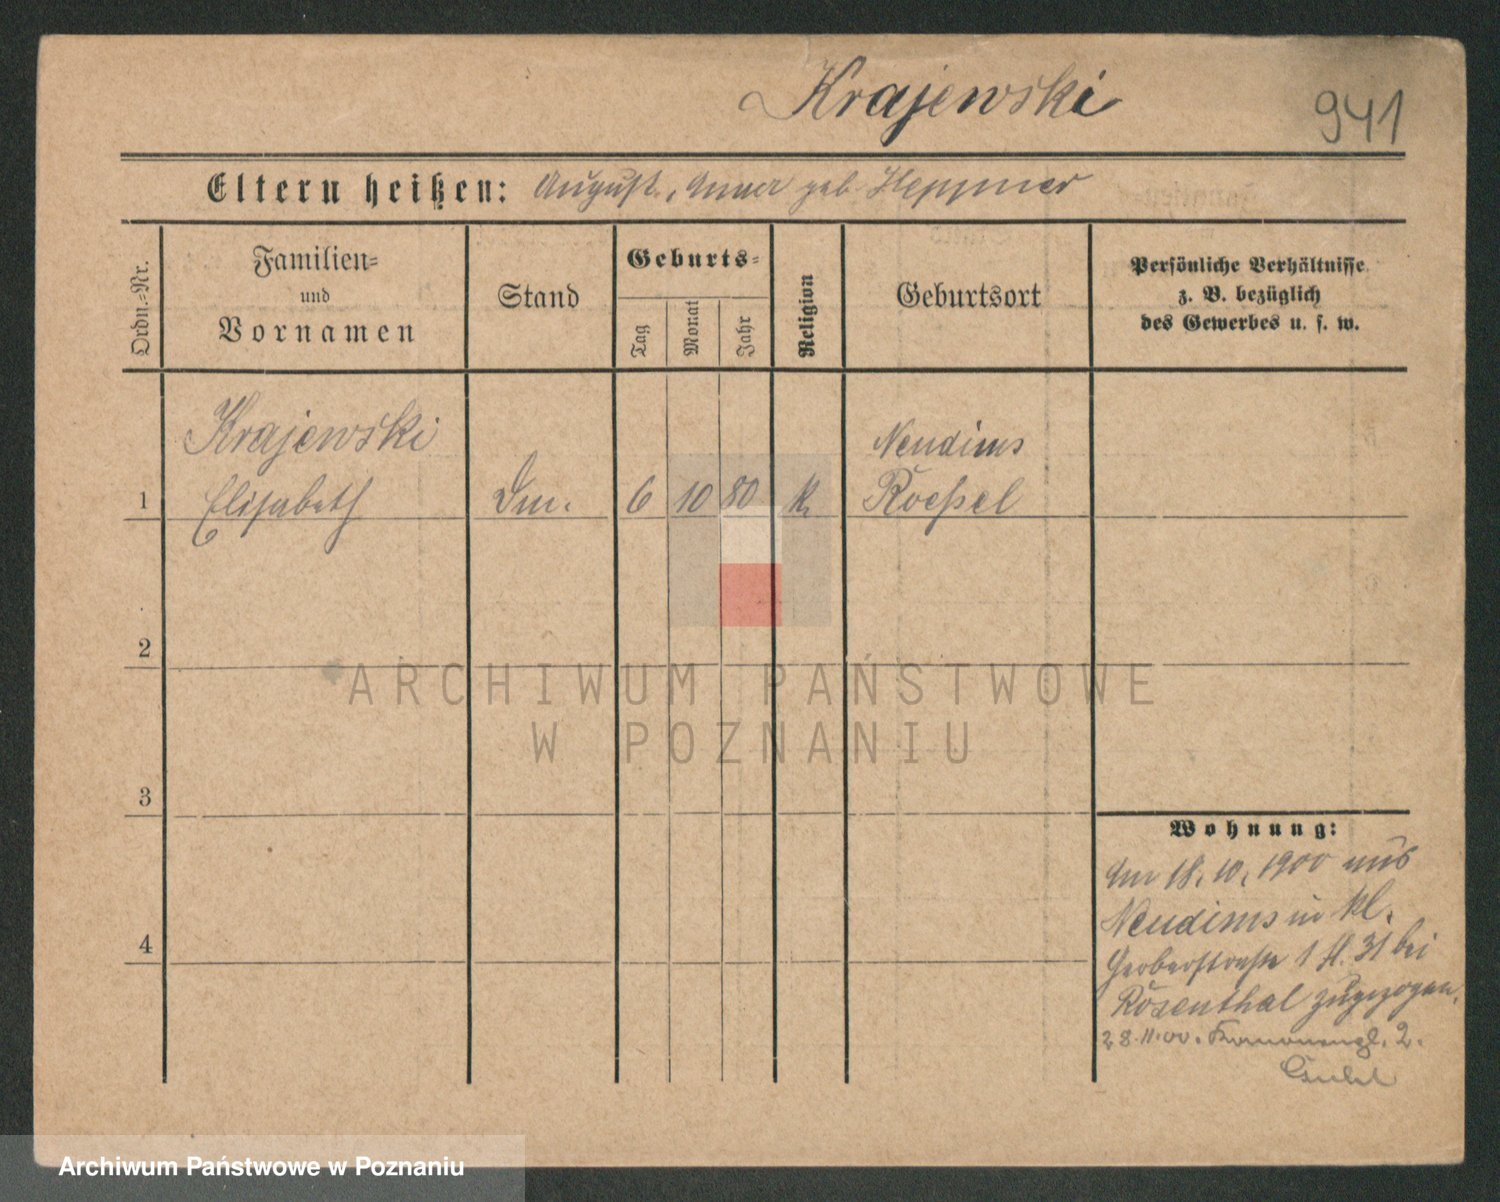 Krajewski
941
Eltern heißen: August, Anna geb. Heppner
Ordn.=Nr.
Familien=
und
Vornamen
Stand
Geburts=
Tag
Monat
Jahr
Religion
Geburtsort
Persönliche Verhältnisse
z. B. bezüglich
des Gewerbes u. s. w.
Krajewski
Neudims
1 Elisabeth 6 10 80 k. Roeßel
2
ARCHIWUM PAŃSTWOWE
W POZNANIU
3
Wohnung:
am 18. 10. 1900 aus
Neudims in kl.
4
Gerberstraße 1 II. 31 bei
Rosenthal zugezogen.
28.11.00. Kanonengl. 2.
Archiwum Państwowe w Poznaniu